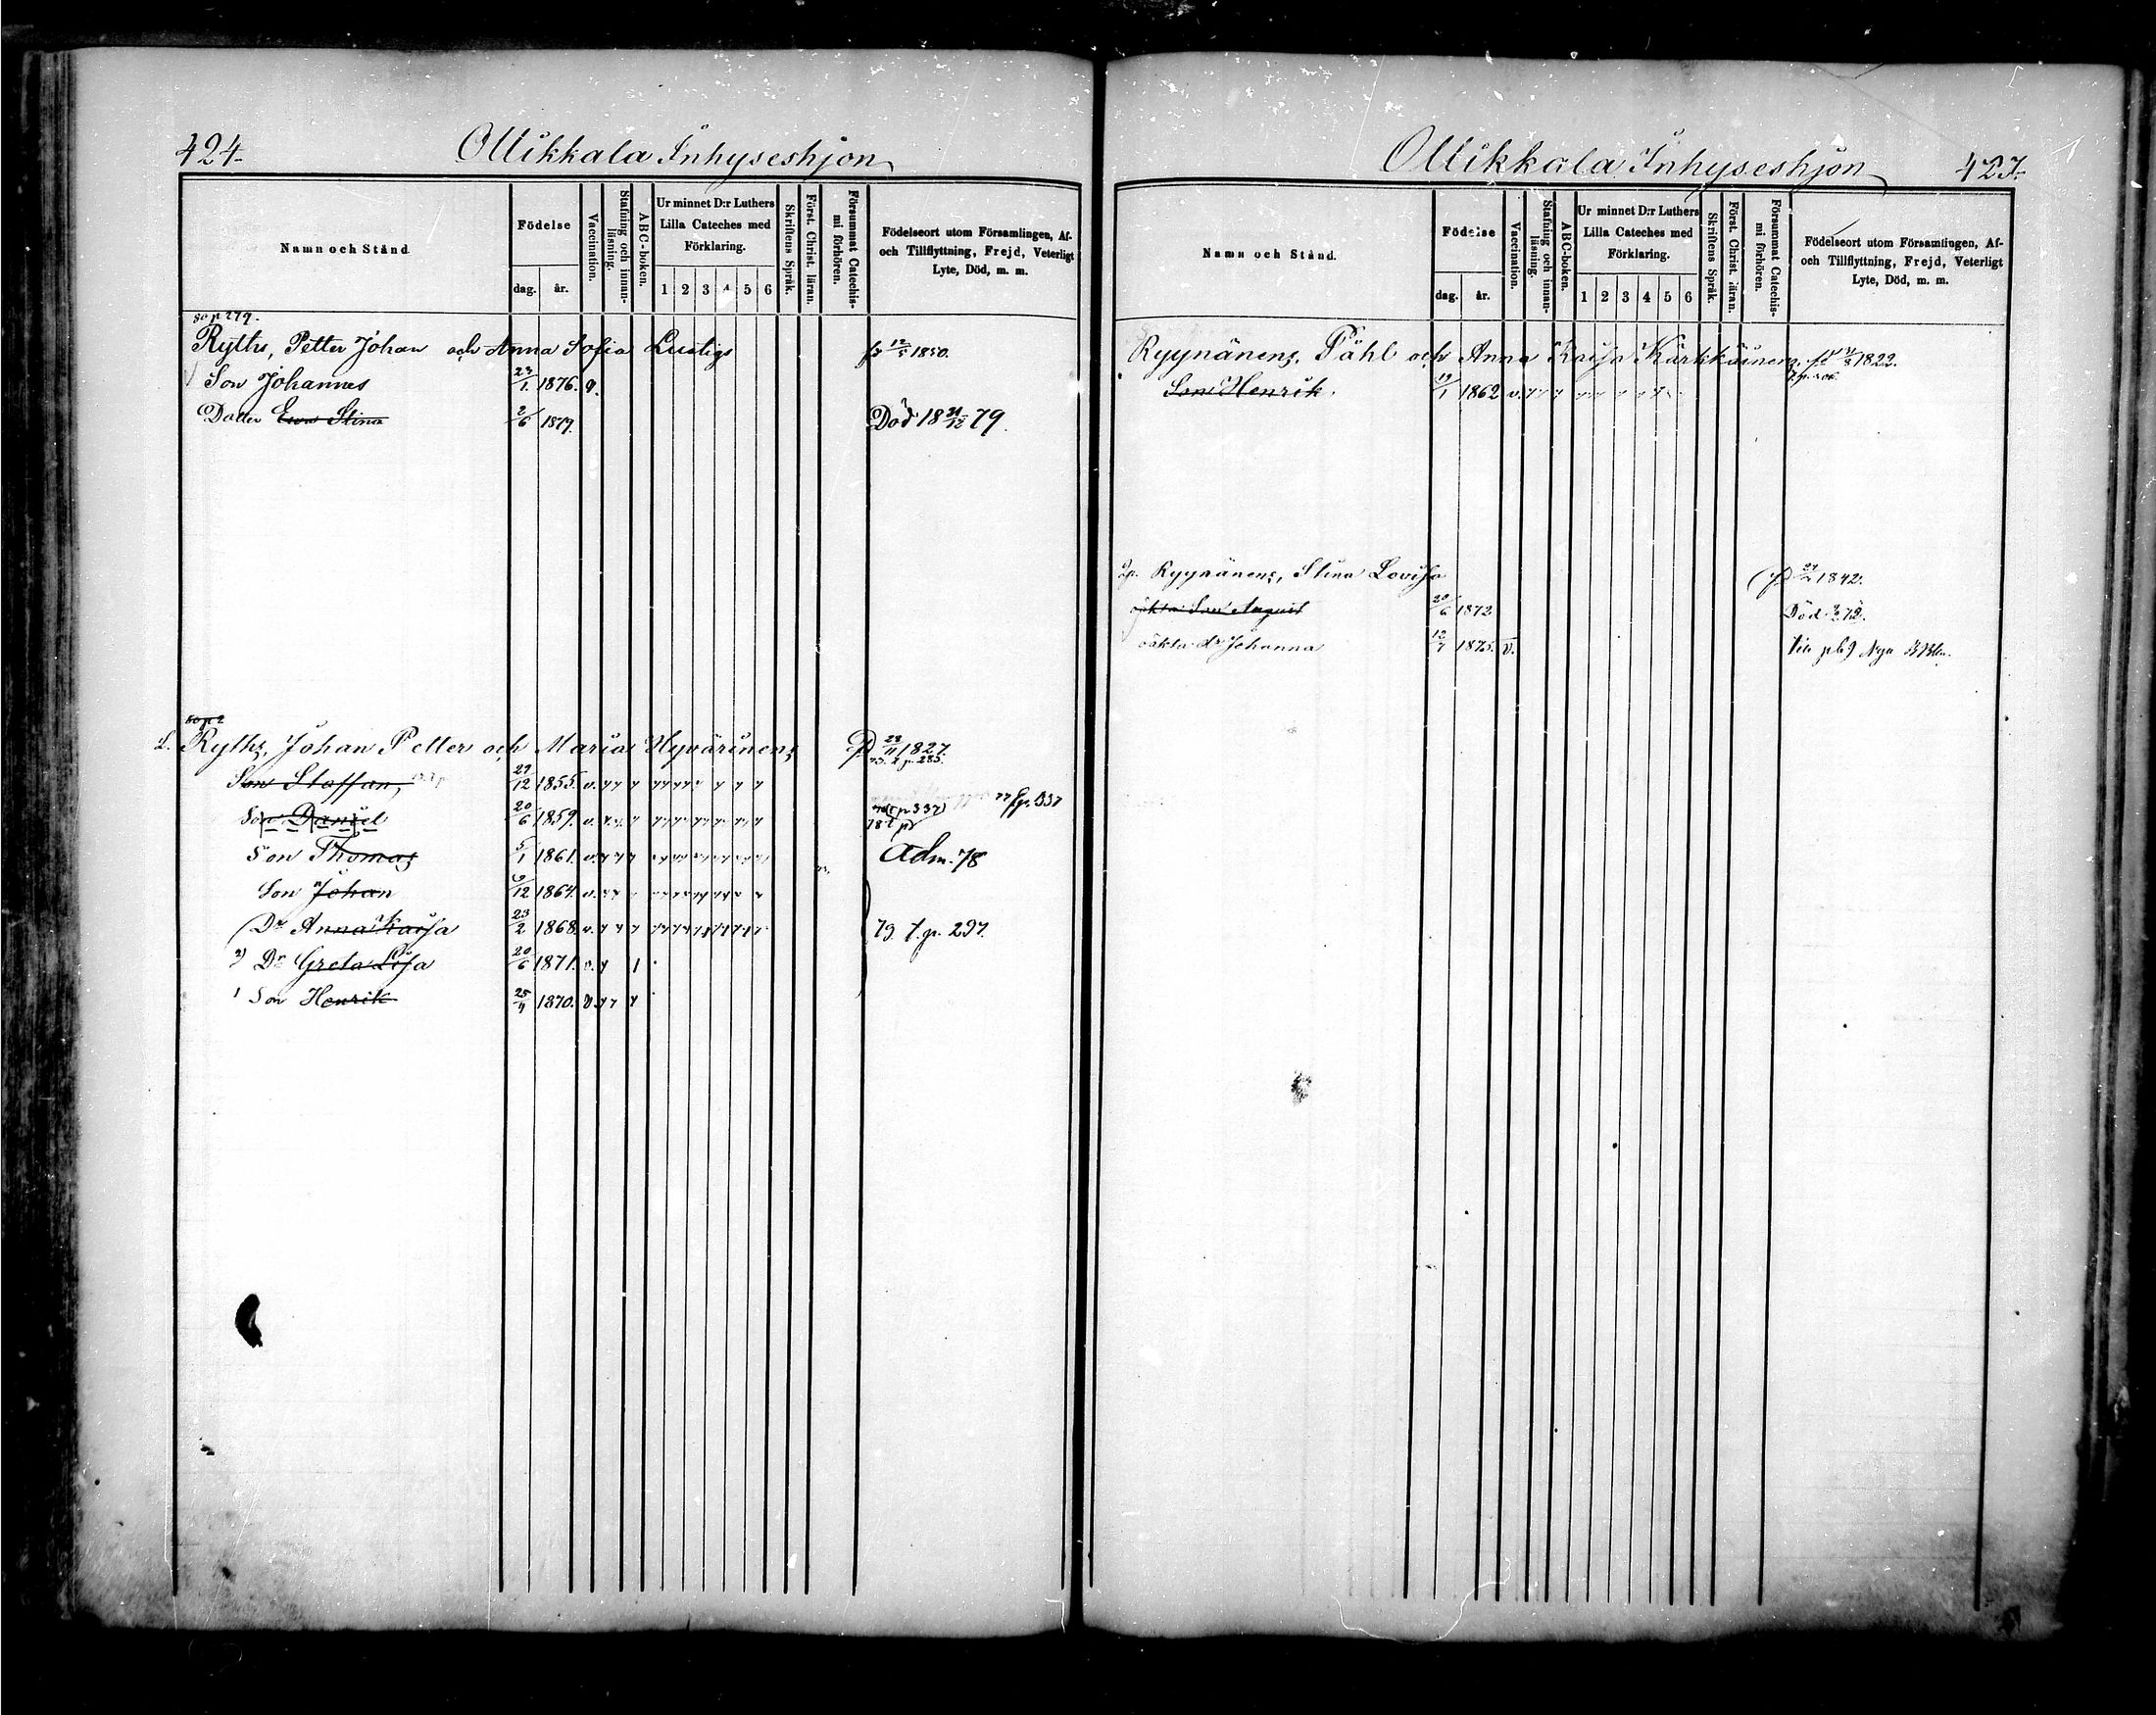 424.
Ollikkala Inhyseshjon
Namn och Stånd
Födelse
dag.
år.
Vaccination.
Stafning och innanläsning.
ABC-boken.
Ur minnet D:r Luthers Lilla Cateches med Förklaring.
1 2 3 4 5 6
Skriftens Språk.
Först. Christ. läran.
Försummat Catechismi förhören.
Födelseort utom Församlingen, Af- och Tillflyttning, Frejd, Veterligt Lyte, Död, m. m.
80 p 279.
Ryths, Petter Johan och Anna Sofia Lustigs 12/5 1850.
Son Johannes 23/1 1876.
Dotter Eva Stina 2/6 1879. Död 18 31/12 79.
Ryths, Johan Petter och Maria Hyvärinens 23/11 1827.
73. t p. 285.
Son Staffan, 29/12 1855. v.
Son Daniel 20/6 1859. v.
Son Thomas 5/1 1861. v. Adm. 78
Son Johan 12 1864. v.
Dr Anna Kaisa 23/2 1868. v. 79. t. p. 297.
2) Dr Greta Lisa 20/6 1871. v.
1 Son Henrik 25 1870. v.
Ollikkala Inhyseshjon
427.
Namn och Stånd.
Födelse
dag.
år.
Vaccination.
Stafning och innanläsning.
ABC-boken.
Ur minnet D:r Luthers Lilla Cateches med Förklaring.
1 2 3 4 5 6
Skriftens Språk.
Först. Christ. läran.
Försummat Catechismi förhören.
Födelseort utom Församlingen, Af- och Tillflyttning, Frejd, Veterligt Lyte, Död, m. m.
Ryynänens, Påhl och Anna Kaisa Kärkkäinens. 1822.
Son Henrik. 19/1 1862 v.
Ryynänens, Stina Lovisa 1842.
oäkta Son August 20/6 1872 Död
oäkta dr Johanna 12/7 1875. v. Nya